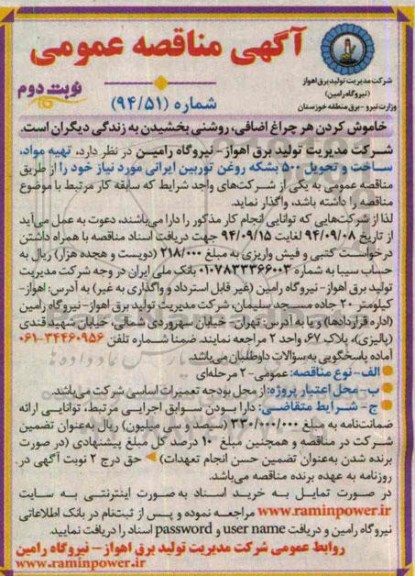 آگهی مناقصه عمومی
شرکت مدیریت تولید برق اهواز
(نیروگاه رامین)
وزارت نیرو - برق منطقه خوزستان
نوبت دوم
شماره (۹۴/۵۱)
خاموش کردن هر چراغ اضافی، روشنی بخشیدن به زندگی دیگران است.
شرکت مدیریت تولید برق اهواز- نیروگاه رامین در نظر دارد، تهیه مواد،
ساخت و تحویل ۵۰۰ بشکه روغن توربین ایرانی مورد نیاز خود را از طریق
مناقصه عمومی به یکی از شرکت‌های واجد شرایط که سابقه کار مرتبط با موضوع
مناقصه را داشته باشد، واگذار نماید.
لذا از شرکت‌هایی که توانایی انجام کار مذکور را دارا می‌باشند، دعوت به عمل می‌آید
از تاریخ ۹۴/۰۹/۰۸ لغایت ۹۴/۰۹/۱۵ جهت دریافت اسناد مناقصه با همراه داشتن
درخواست کتبی و فیش واریزی به مبلغ ۲۱۸/۰۰۰ (دویست و هجده هزار) ریال به
حساب سیبا به شماره ۰۱۰۷۸۳۳۳۶۶۰۰۳ بانک ملی ایران در وجه شرکت مدیریت
تولید برق اهواز- نیروگاه رامین (غیر قابل استرداد و واگذاری به غیر) به آدرس: اهواز-
کیلومتر ۲۰ جاده مسجد سلیمان، شرکت مدیریت تولید برق اهواز- نیروگاه رامین
(اداره قراردادها) و یا به آدرس: تهران- خیابان سهروردی شمالی، خیابان شهید قندی
(پالیزی)، پلاک ۶۷، واحد ۲ مراجعه نمایند. ضمنا شماره تلفن ۳۴۴۶۰۹۵۶-۰۶۱
آماده پاسخگویی به سؤالات داوطلبان می‌باشد
الف- نوع مناقصه: عمومی- ۲ مرحله‌ای
ب- محل اعتبار پروژه: از محل بودجه تعمیرات اساسی شرکت می‌باشد.
ج- شرایط متقاضی: دارا بودن سوابق اجرایی مرتبط، توانایی ارائه
ضمانت‌نامه به مبلغ ۳۳۰/۰۰۰/۰۰۰ (سیصد و سی میلیون) ریال به‌عنوان تضمین
شرکت در مناقصه و همچنین مبلغ ۱۰ درصد کل مبلغ پیشنهادی (در صورت
برنده شدن به‌عنوان تضمین حسن انجام تعهدات) حق درج ۲ نوبت آگهی در
روزنامه به عهده برنده مناقصه می‌باشد.
در صورت تمایل به خرید اسناد به صورت اینترنتی به سایت
www.raminpower.ir مراجعه نموده و پس از ثبت‌نام در بانک اطلاعاتی
نیروگاه رامین و دریافت user name و password اسناد را دریافت نمایید.
روابط عمومی شرکت مدیریت تولید برق اهواز- نیروگاه رامین
www.raminpower.ir